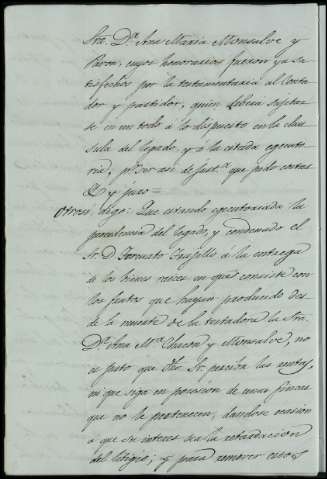 Sra. Dª Ana Maria Monsalve y
Pavon, cuyos honorarios fueron ya sa-
tisfechos por la testamentaria al Conta-
dor y partidor, quien debera sujetar-
se en un todo á lo dispuesto en la clau-
sula del legado, y á la citada ejecuto-
ria, pr. ser así de justª que pido costas
& y juro =
Otrosi digo: Que estando ejecutoriada la
procedencia del legado, y condenado el
Sr. D. Fernando Trujillo á la entrega
de los bienes raices en que consiste con
los frutos que hayan producido des-
de la muerte de la testadora la Sra.
Dª Ana Mª Chacon y Monsalve, no
es justo que dho. Sr. perciba las rentas,
ni que siga en posesion de unas fincas
que no le pertenecen, dandose ocasion
á que su interes sea la retardacion
del litigio; y para remover esos